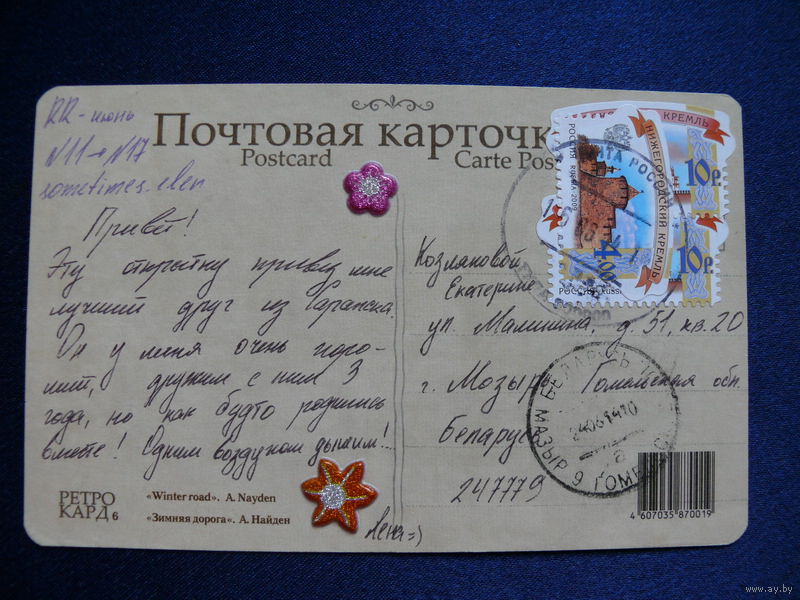 RR - июнь
N11→N17
sometimes.elen
Почтовая карточк
Postcard
Carte Post
Привет!
Эту открытку привёз мне
лучший друг из Саранска.
Он у меня очень
дружим с ним 3
года, но как будто родились
вместе! Одним воздухом дышим!..
Лена=)
РЕТРО
КАРД 6
«Winter road». A. Nayden
«Зимняя дорога». А. Найден
Козляковой
Екатерине
ул. Малинина, д. 51, кв. 20
г. Мозырь Гомельская обл.
Беларусь
247779
КРЕМЛЬ
НИЖЕГОРОДСКИЙ КРЕМЛЬ
10р.
10р.
РОССИЯ RUSSIA 2009
РОССИЯ
ПОЧТА РОССИИ
БЕЛАРУСЬ
МАЗЫР 9 ГОМЕЛ
240614 10
а
4 607035 870019
www.ay.by